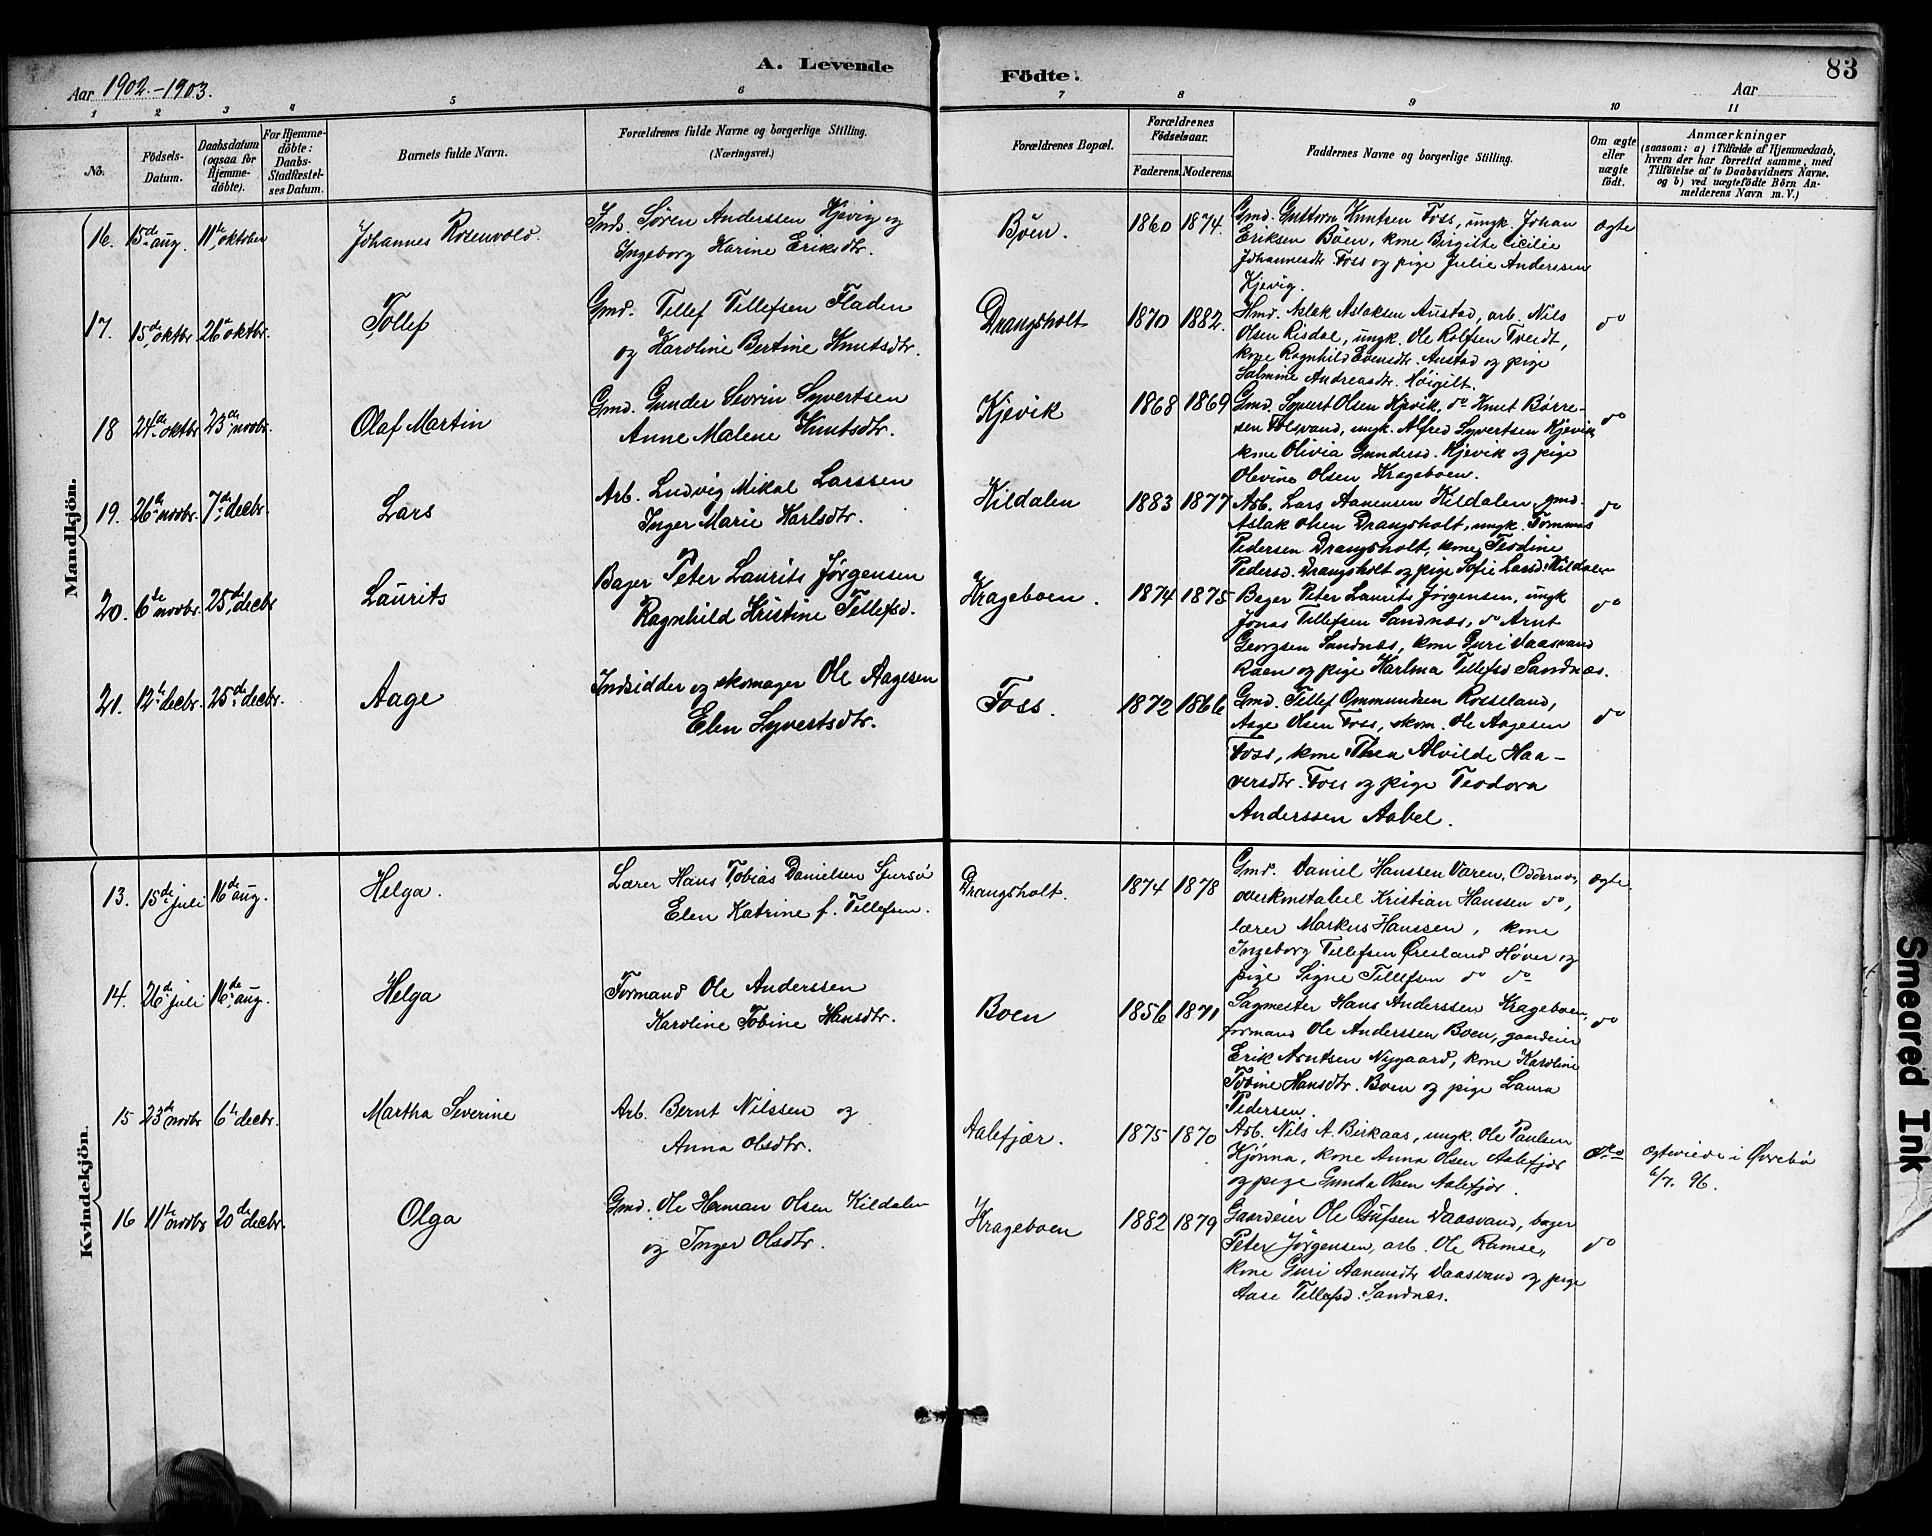 A. Levende Födte.
83
Aar 1902.-1903.
Aar
1 2 3 4 5 6 7 8 9 10 11
No.
Födsels-Datum.
Daabsdatum (ogsaa for Hjemme-döbte).
For Hjemme-döbte: Daabs-Stadfæstel-ses Datum.
Barnets fulde Navn.
Forældrenes fulde Navne og borgerlige Stilling. (Næringsvei.)
Forældrenes Bopæl.
Forældrenes Födselsaar.
Faderens. Moderens.
Faddernes Navne og borgerlige Stilling.
Om ægte eller uægte födt.
Anmærkninger
(saasom: a) i Tilfælde af Hjemmedaab,
hvem der har forrettet samme, med
Tilföielse af to Daabsvidners Navne.
og b) ved uægtefödte Börn An-
melderens Navn m. V.)
Mandkjön.
16. 15de aug. 11te oktober
Johannes Rosenvold.
Inds. Søren Anderssen Kjevig og
Ingeborg Karine Eriksdtr.
Bøen.
1860 1874.
Gmd. Guttorm Knutsen Foss, ungk. Johan
Eriksen Bøen, kone Birgitte Cicilie
Johannesdtr Foss og pige Julie Anderssen
Kjevig.
ægte
17. 15de oktbr 26de oktbr.
Tollef
Gmd. Tellef Tellefsen Fladen
og Karoline Bertine Knutsdtr.
Drangsholt
1870 1882.
Hmd. Aslak Aslaksen Austad, arb. Nils
Olsen Risdal, ungk. Ole Rolfsen Tveidt,
kone Ragnhild Evensdtr. Austad og pige
Salmine Andreasdtr. Høigilt.
do
18 24de oktbr 23de novbr.
Olaf Martin
Gmd. Gunder Severin Syvertsen
Anne Malene Knutsdtr.
Kjevik
1868 1869
Gmd. Syvert Olsen Kjevik, do Knut Børre-
sen Tolsvand, ungk. Alfred Syvertsen Kjevik,
kone Olivia Gundersd. Kjevik og pige
Olevine Olsen Krageboen.
do
19. 26de novbr. 7de decbr.
Lars
Arb. Ludvig Mikal Larssen
Inger Marie Karlsdtr.
Kildalen
1883 1877
Arb. Lars Aanensen Kildalen, gmd.
Aslak Olsen Drangsholt, ungk. Tommas
Pedersen Drangsholt, kone Teodine
Pedersd. Drangsholt og pige Sofie Larsd. Kildalen
do
20. 6te novbr. 25de decbr
Laurits
Bager Peter Laurits Jørgensen
Ragnhild Kristine Tellefsd.
Krageboen.
1874 1875
Bager Peter Laurits Jørgensen, ungk
Jonas Tellefsen Sandnæs, do Arnt
Georgsen Sandnæs, kone Guri Vaasvand
Raen og pige Karlma Tellefsd Sandnæs.
do
21. 12te decbr. 25de decbr.
Aage
Indsidder og skomager Ole Aagesen
Elen Syvertsdtr.
Foss.
1872 1866
Gmd. Tellef Ommundsen Rosseland,
Aage Olsen Foss, skom. Ole Aagesen
Foss, kone Thea Alvilde Haa-
versdtr. Foss og pige Teodora
Anderssen Aabel.
do
Kvindekjön.
13. 15de juli 16de aug.
Helga.
Lærer Hans Tobias Danielsen
Elen Katrine f. Tellefsen.
Drangsholt.
1874 1878
Gmd. Daniel Hanssen Varen, Oddernes,
overkonstabel Kristian Hanssen do,
lærer Markus Hanssen, kone
Ingeborg Tellefsen Øresland Høver og
pige Signe Tellefsen do do
ægte.
14. 26de juli 16de aug.
Helga
Formand Ole Anderssen
Karoline Tobine Hansdtr.
Boen
1856 1871
Sagmester Hans Anderssen Krageboen,
formand Ole Anderssen Boen, gaardeier
Erik Arntsen Nygaard, kone Karoline
Tobine Hansdtr. Boen og pige Laura
Pedersen.
do
15 23de novbr 6te decbr.
Martha Severine
Arb. Bernt Nilssen og
Anna Olsdtr.
Aalefjær.
1875 1870
Arb. Nils A. Birkaas, ungk. Ole Paulsen
Kjønna, kone Anna Olsen Aalefjær
og pige Gunda Olsen Aalefjær.
do
Ægteviede i Øvrebø
6/7. 96.
16 11te novbr 20de decbr.
Olga
Gmd. Ole Herman Olsen Kildalen
og Inger Olsdtr.
Krageboen
1882 1879
Gaardeier Ole Osufsen Vaasvand, bager
Peter Jørgensen, arb. Ole Ramse,
kone Guri Aanensdtr Vaasvand og pige
Aase Tellefsd. Sandnæs.
do
Smeared Ink